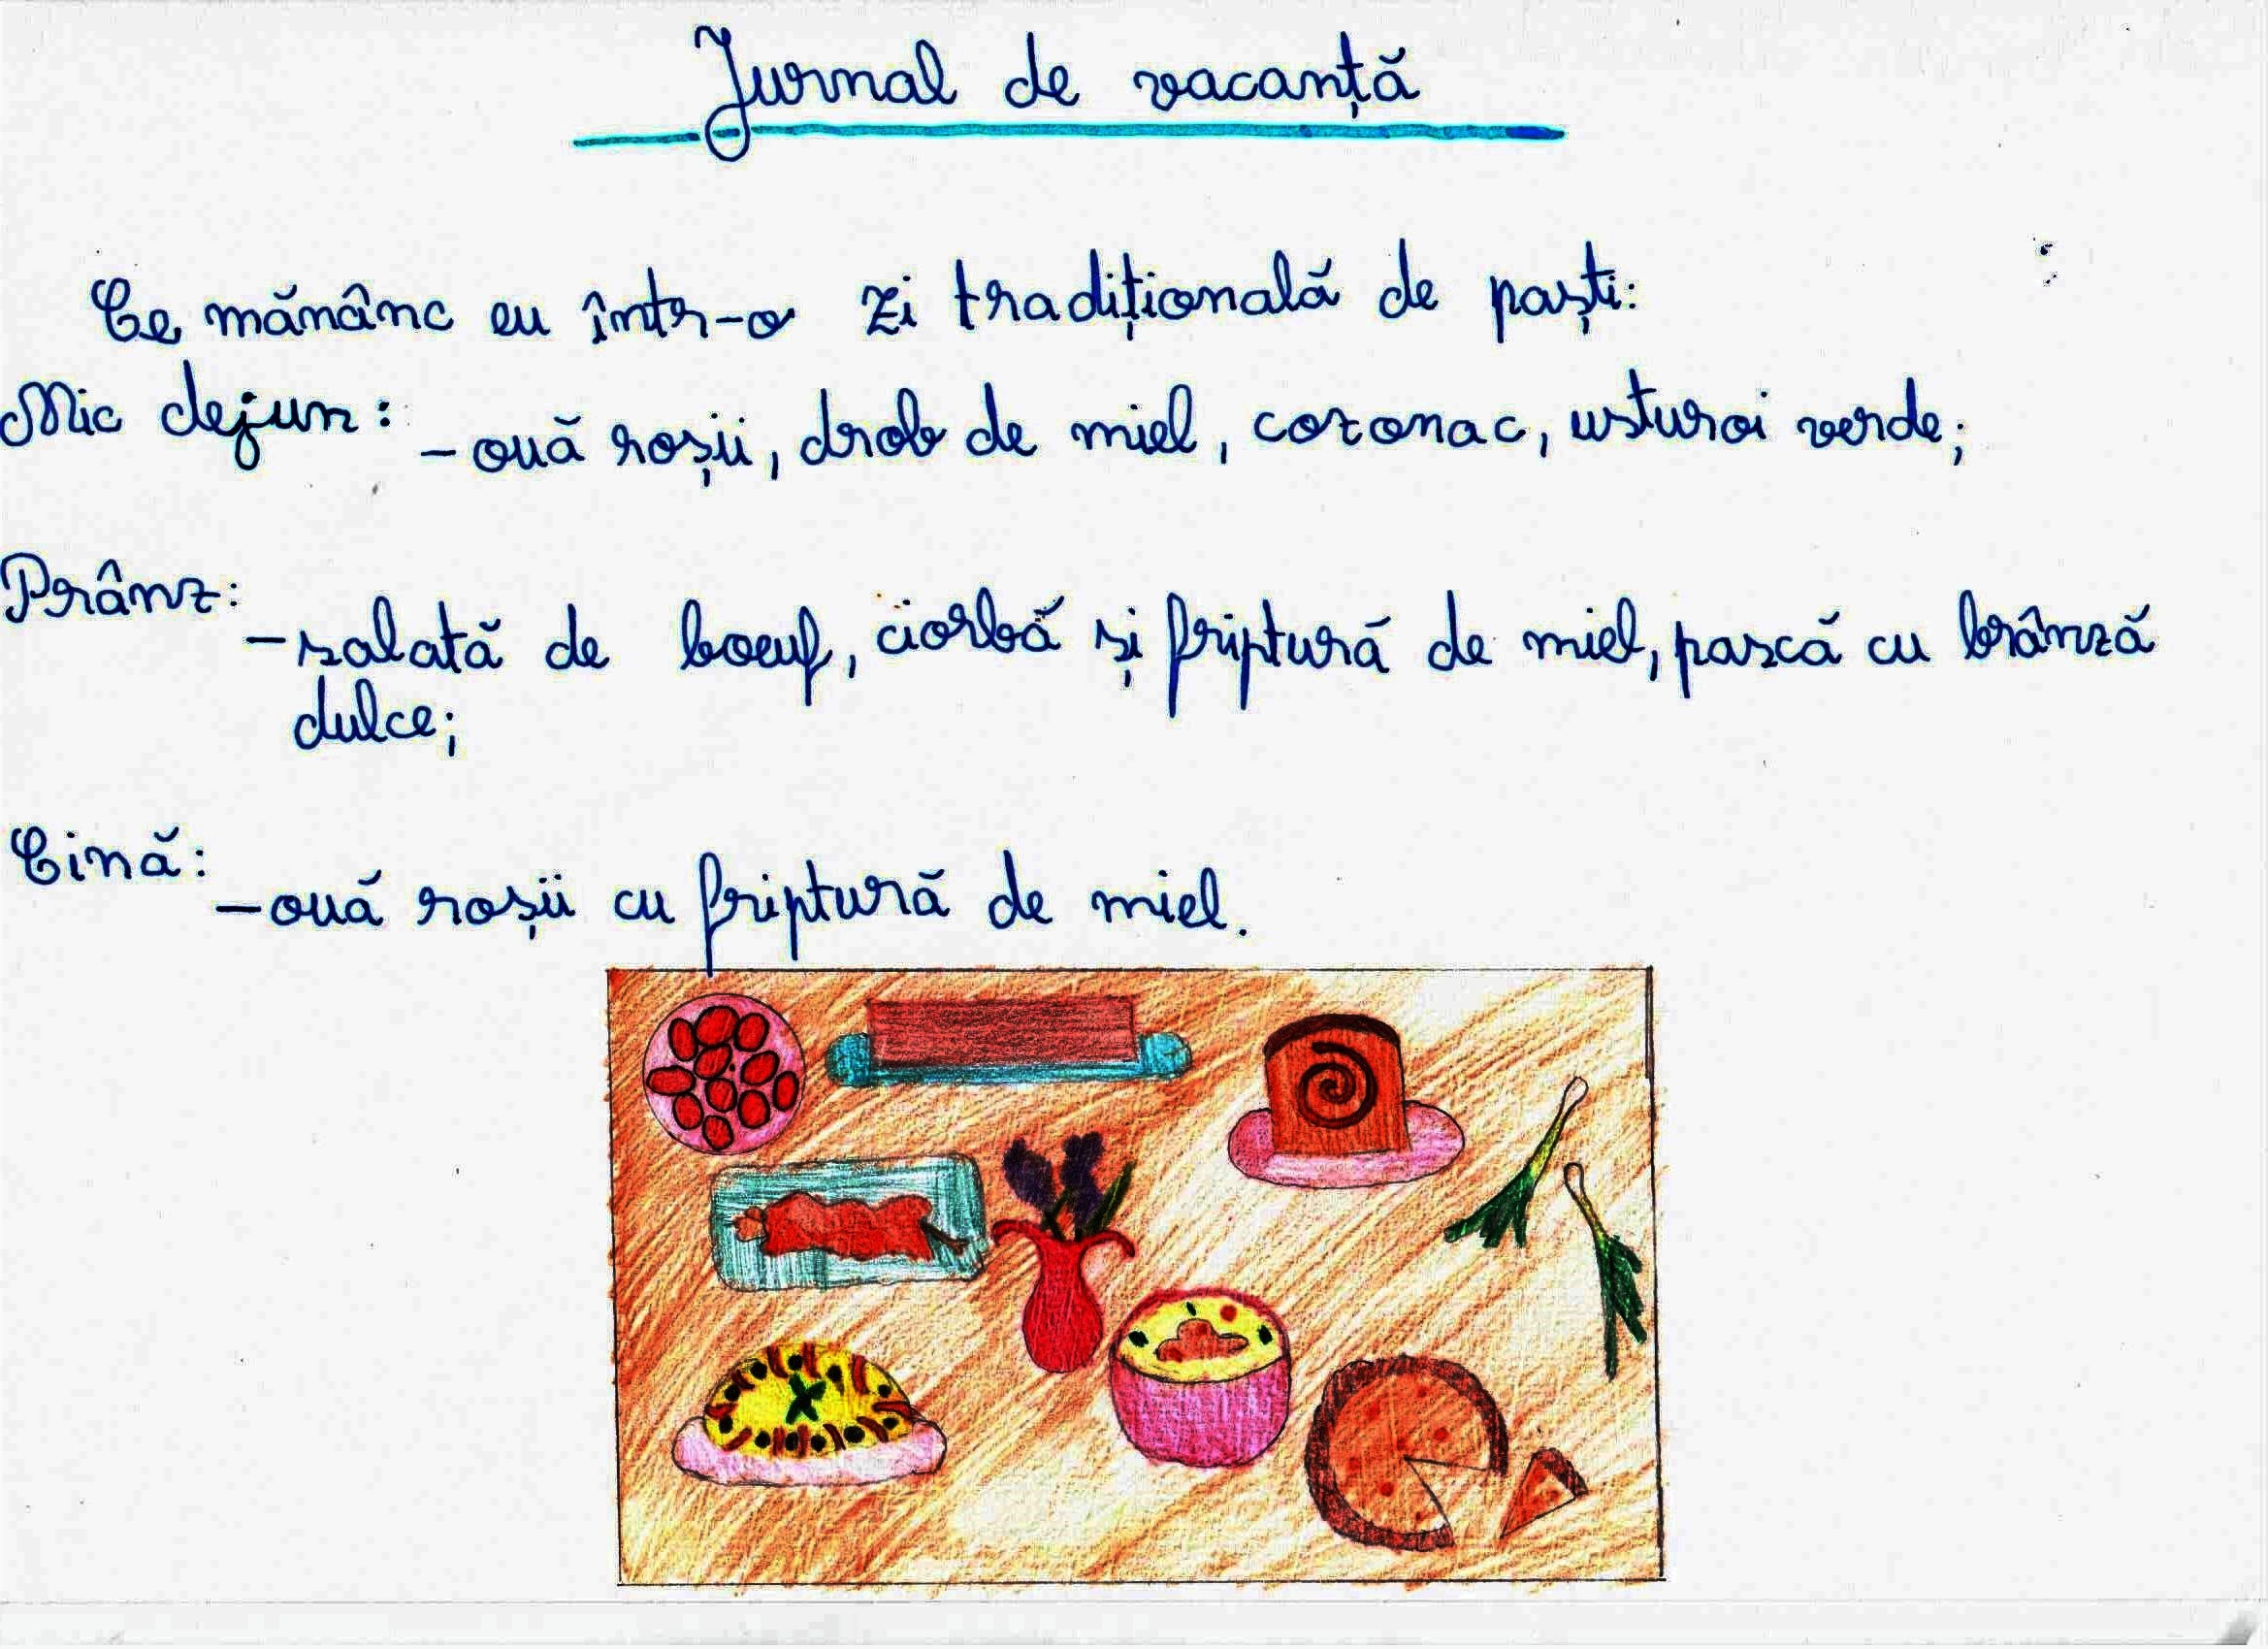 Jurnal de vacanță
Ce mănânc eu într-o zi tradițională de paști:
Mic dejun: -ouă roșii, drob de miel, cozonac, usturoi verde;
Prânz: -salată de boeuf, ciorbă și friptură de miel, pască cu brânză
dulce;
Cină: -ouă roșii cu friptură de miel.